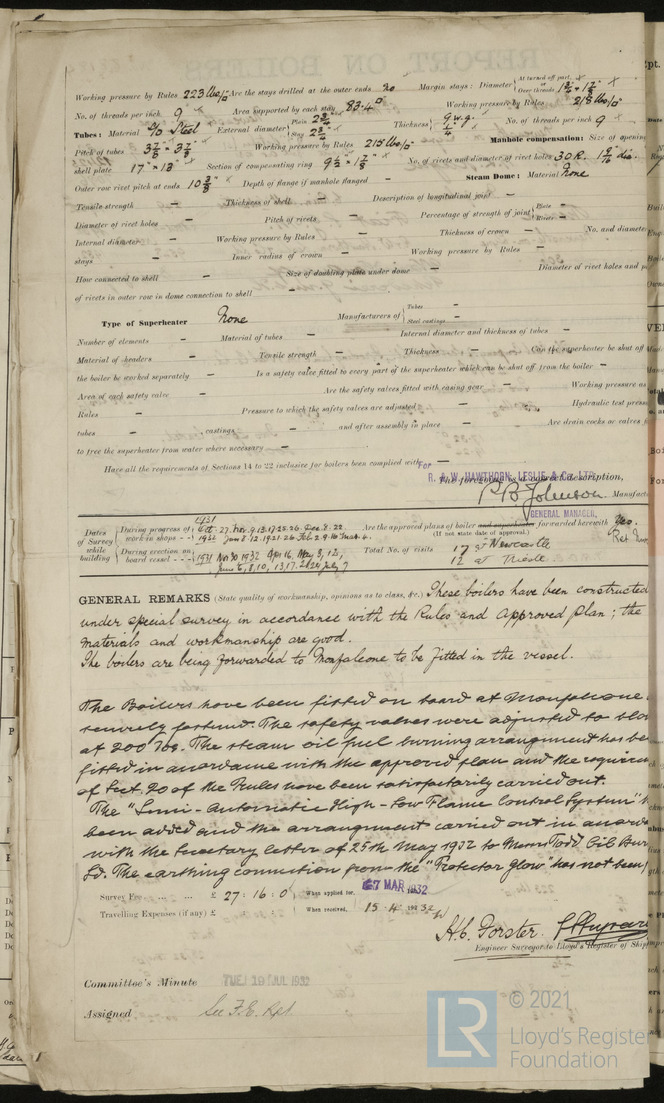 Working pressure by Rules 223 lbs/□" Are the stays drilled at the outer ends No Margin stays: Diameter { At turned off part, or Over threads 1¾" + 1⅞"
No. of threads per inch 9 Area supported by each stay 83.4 □" Working pressure by Rules 218 lbs/□"
Tubes: Material Steel External diameter { Plain 2¾" Stay 2¾" Thickness { 9 w.g. ¼" No. of threads per inch 9
Pitch of tubes 3⅞" × 3⅞" Working pressure by Rules 215 lbs/□" Manhole compensation: Size of opening
shell plate 17" × 13" Section of compensating ring No. of rivets and diameter of rivet holes 30 R. dia.
Outer row rivet pitch at ends Depth of flange if manhole flanged - Steam Dome: Material None
Tensile strength - Thickness of shell - Description of longitudinal joint -
Diameter of rivet holes - Pitch of rivets - Percentage of strength of joint { Plate - Rivets -
Internal diameter - Working pressure by Rules - Thickness of crown - No. and diameter
stays - Inner radius of crown - Working pressure by Rules -
How connected to shell - Size of doubling plate under dome - Diameter of rivet holes and p
of rivets in outer row in dome connection to shell -
Type of Superheater None Manufacturers of { Tubes - Steel castings -
Number of elements - Material of tubes - Internal diameter and thickness of tubes -
Material of headers - Tensile strength - Thickness - Can the superheater be shut off
the boiler be worked separately - Is a safety valve fitted to every part of the superheater which can be shut off from the boiler -
Area of each safety valve - Are the safety valves fitted with easing gear - Working pressure as
Rules - Pressure to which the safety valves are adjusted - Hydraulic test press
tubes - castings - and after assembly in place - Are drain cocks or valves f
to free the superheater from water where necessary -
Have all the requirements of Sections 14 to 22 inclusive for boilers been complied with
For R. & W. HAWTHORN, LESLIE & Co., LTD.
The foregoing is a correct description,
P.B. Johnson Manufact
GENERAL MANAGER.
Dates of Survey while building
During progress of work in shops - - 1931 Oct. 27. Nov. 9.13.17.25.26. Dec. 8.22. 1932 Jan 8.12.19.21.26. Feb 2.9.16. Mar. 4.
During erection on board vessel - - - 1931 Nov 30 1932 Apr 16, May 3, 12, June 6, 8, 10, 13, 17. July 7
Are the approved plans of boiler and superheater forwarded herewith Yes.
(If not state date of approval.)
Total No. of visits 17 at Newcastle
12 at Trieste
GENERAL REMARKS (State quality of workmanship, opinions as to class, &c.) These boilers have been constructed
under special survey in accordance with the Rules and approved plan; the
materials and workmanship are good.
The boilers are being forwarded to Monfalcone to be fitted in the vessel.
The Boilers have been fitted on board at Monfalcone
securely fastened. The safety valves were adjusted to blow
at 200 lbs. The steam oil fuel burning arrangement has be
fitted in accordance with the approved plan and the requirem
of Sect. 20 of the Rules have been satisfactorily carried out.
The "Semi-Automatic High-Low Flame Control System" h
been added and the arrangement carried out in accord
with the Secretary letter of 25th May 1932 to Messrs Todd Oil Bur
Ld. The earthing connection from the "Protector Glow" has not been
Survey Fee ... ... £ 27 : 16 : 0 When applied for, 7 MAR 1932
Travelling Expenses (if any) £ : : When received, 15.4.1932
H.C. Forster.
Engineer Surveyor to Lloyd's Register of Ship
Committee's Minute TUE 19 JUL 1932
Assigned See F.E. Rpt
LR © 2021
Lloyd's Register
Foundation